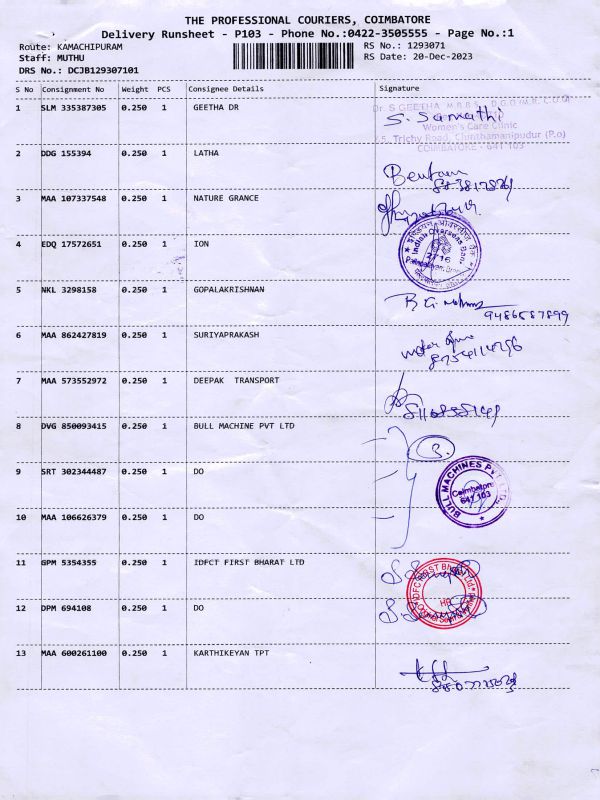 THE PROFESSIONAL COURIERS, COIMBATORE
Delivery Runsheet - P103 - Phone No.:0422-3505555 - Page No.:1
Route: KAMACHIPURAM RS No.: 1293071
Staff: MUTHU RS Date: 20-Dec-2023
DRS No.: DCJB129307101
S No Consignment No Weight PCS Consignee Details Signature
1 SLM 335387305 0.250 1 GEETHA DR
Dr. S GEETHA M.B.B.S., D.G.O
Women's Care Clinic
Trichy Road, Chinthamanipudur (P.o)
COIMBATORE - 641 103
2 DDG 155394 0.250 1 LATHA
3 MAA 107337548 0.250 1 NATURE GRANCE
4 EDQ 17572651 0.250 1 ION
Indian Overseas Bank
2716
5 NKL 3298158 0.250 1 GOPALAKRISHNAN
9486587899
6 MAA 862427819 0.250 1 SURIYAPRAKASH
7 MAA 573552972 0.250 1 DEEPAK TRANSPORT
8 DVG 850093415 0.250 1 BULL MACHINE PVT LTD
3.
9 SRT 302344487 0.250 1 DO
BULL MACHINES PVT. LTD.
Coimbatore
641 103
10 MAA 106626379 0.250 1 DO
11 GPM 5354355 0.250 1 IDFCT FIRST BHARAT LTD
IDFC FIRST Bharat Ltd
HR
12 DPM 694108 0.250 1 DO
13 MAA 600261100 0.250 1 KARTHIKEYAN TPT